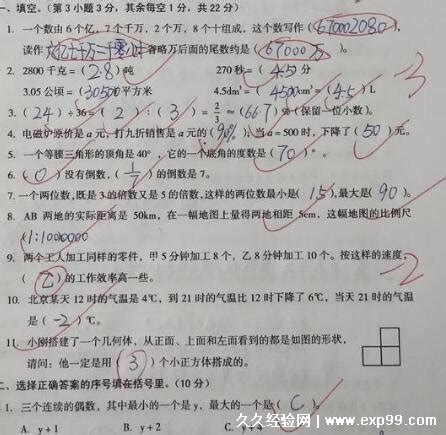 一、填空。(第3小题3分,其余每空1分,共22分)
1. 一个数由6个亿,7个千万,2个万,8个十组成,这个数写作(670002080),
读作六亿七千万二千零八十省略万后面的尾数约是(67000万)。
2. 2800千克=(2.8)吨 270秒=(4.5)分
3.05公顷=(30500)平方米 4.5dm³=(4500)cm³=(4.5)L
-3
3. (24)÷36=(2):(3)=2/3≈(66.7)%(保留一位小数)。
4. 电磁炉原价是a元,打九折销售是a元的(90%);当a=500时,下降了(50)元。
5. 一个等腰三角形的顶角是40°,它的一个底角的度数是(70)°。
6. (0)没有倒数,(1/7)的倒数是7。
7. 一个两位数,既是3的倍数又是5的倍数,这样的两位数最小是(15),最大是(90)。
8. AB两地的实际距离是50km,在一幅地图上量得两地相距5cm,这幅地图的比例尺
(1:1000000)
9. 两个工人加工同样的零件,甲5分钟加工8个,乙8分钟加工10个。按这样的速度,
(乙)的工作效率高一些。
-2
10. 北京某天12时的气温是4℃,到21时的气温比12时下降了6℃,当天21时的气温
是(-2)℃。
11. 小刚搭建了一个几何体,从正面、上面和左面看到的都是如图的形状,
请问:他一定是用(3)个小正方体搭成的。
二、选择正确答案的序号填在括号里。(10分)
1. 三个连续的偶数,其中最小的一个是y,最大的一个是(C)。
A. y+1 B. y+2 C. y+4
久久经验网 www.exp99.com